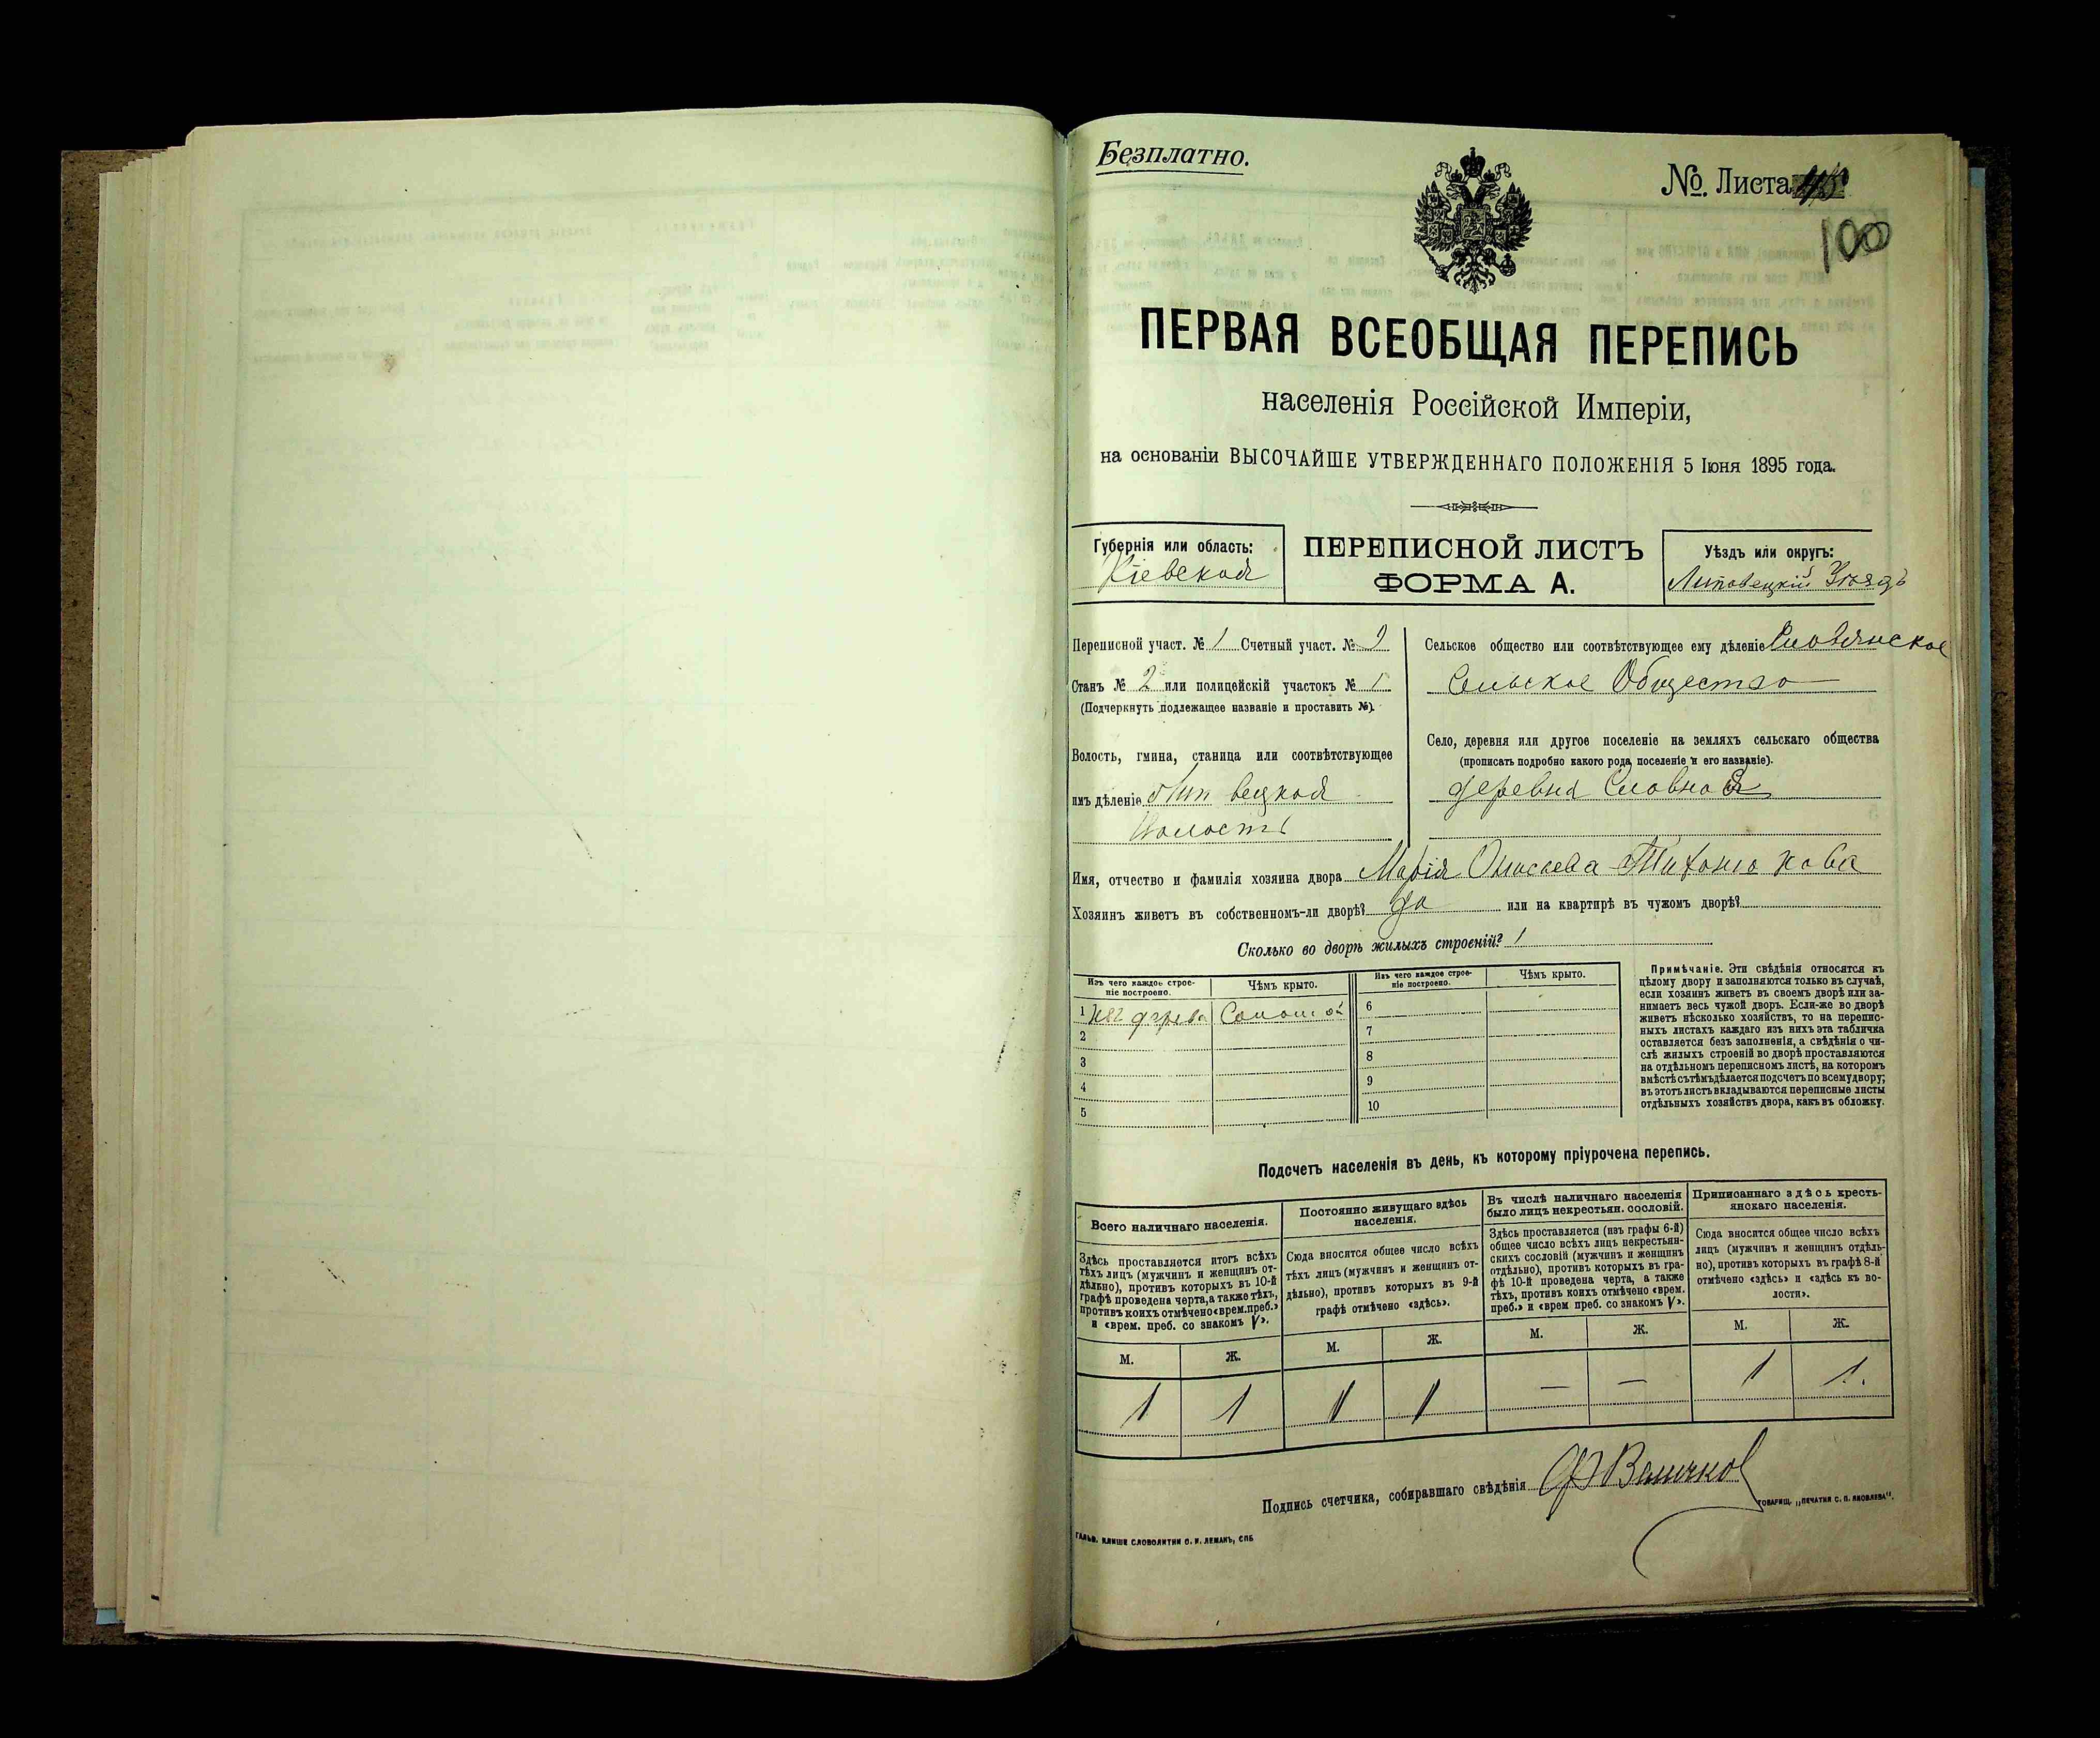 Безплатно.
№ Листа 45
100
ПЕРВАЯ ВСЕОБЩАЯ ПЕРЕПИСЬ
населенія Россійской Имперіи,
на основаніи ВЫСОЧАЙШЕ УТВЕРЖДЕННАГО ПОЛОЖЕНІЯ 5 Іюня 1895 года.
Губернія или область:
Кіевская
ПЕРЕПИСНОЙ ЛИСТЪ
ФОРМА А.
Уѣздъ или округъ:
Липовецкій Уѣздъ
Переписной участ. № 1 Счетный участ. № 9
Станъ № 2 или полицейскій участокъ № 1
(Подчеркнуть подлежащее названіе и проставить №).
Волость, гмина, станица или соотвѣтствующее
имъ дѣленіе Лип вецкой
Волости
Сельское общество или соотвѣтствующее ему дѣленіе
Сельское Общество
Село, деревня или другое поселеніе на земляхъ сельскаго общества
(прописать подробно какого рода поселеніе и его названіе).
деревня Словная
Имя, отчество и фамилія хозяина двора Марія Тихонюкова
Хозяинъ живетъ въ собственномъ-ли дворѣ? да или на квартирѣ въ чужомъ дворѣ?
Сколько во дворѣ жилыхъ строеній? 1
Изъ чего каждое строе-
ніе построено.
Чѣмъ крыто.
Изъ чего каждое строе-
ніе построено.
Чѣмъ крыто.
1 Изъ дерева Соломой 6
2 7
3 8
4 9
5 10
Примѣчаніе. Эти свѣдѣнія относятся къ
цѣлому двору и заполняются только въ случаѣ,
если хозяинъ живетъ въ своемъ дворѣ или за-
нимаетъ весь чужой дворъ. Если-же во дворѣ
живетъ нѣсколько хозяйствъ, то на перепис-
ныхъ листахъ каждаго изъ нихъ эта табличка
оставляется безъ заполненія, а свѣдѣнія о чи-
слѣ жилыхъ строеній во дворѣ проставляются
на отдѣльномъ переписномъ листѣ, на которомъ
вмѣстѣ съ тѣмъ дѣлается подсчетъ по всему двору;
въ этотъ листъ вкладываются переписные листы
отдѣльныхъ хозяйствъ двора, какъ въ обложку.
Подсчетъ населенія въ день, къ которому пріурочена перепись.
Всего наличнаго населенія.
Здѣсь проставляется итогъ всѣхъ
тѣхъ лицъ (мужчинъ и женщинъ от-
дѣльно), противъ которыхъ въ 10-й
графѣ проведена черта, а также тѣхъ,
противъ коихъ отмѣчено «врем. преб.»
и «врем. преб. со знакомъ V».
Постоянно живущаго здѣсь
населенія.
Сюда вносится общее число всѣхъ
тѣхъ лицъ (мужчинъ и женщинъ от-
дѣльно), противъ которыхъ въ 9-й
графѣ отмѣчено «здѣсь».
Въ числѣ наличнаго населенія
было лицъ некрестьян. сословій.
Здѣсь проставляется (изъ графы 6-й)
общее число всѣхъ лицъ некрестьян-
скихъ сословій (мужчинъ и женщинъ
отдѣльно), противъ которыхъ въ гра-
фѣ 10-й проведена черта, а также
тѣхъ, противъ коихъ отмѣчено «врем.
преб.» и «врем преб. со знакомъ V».
Приписаннаго здѣсь кресть-
янскаго населенія.
Сюда вносится общее число всѣхъ
лицъ (мужчинъ и женщинъ отдѣль-
но), противъ которыхъ въ графѣ 8-й
отмѣчено «здѣсь» и «здѣсь къ во-
лости».
М. Ж. М. Ж. М. Ж. М. Ж.
1 1 1 1 — — 1 1.
Подпись счетчика, собиравшаго свѣдѣнія
ТОВАРИЩ. „ПЕЧАТНЯ С. П. ЯКОВЛЕВА".
ГАЛЬВ. КЛИШЕ СЛОВОЛИТНИ О. И. ЛЕМАНЪ, СПБ